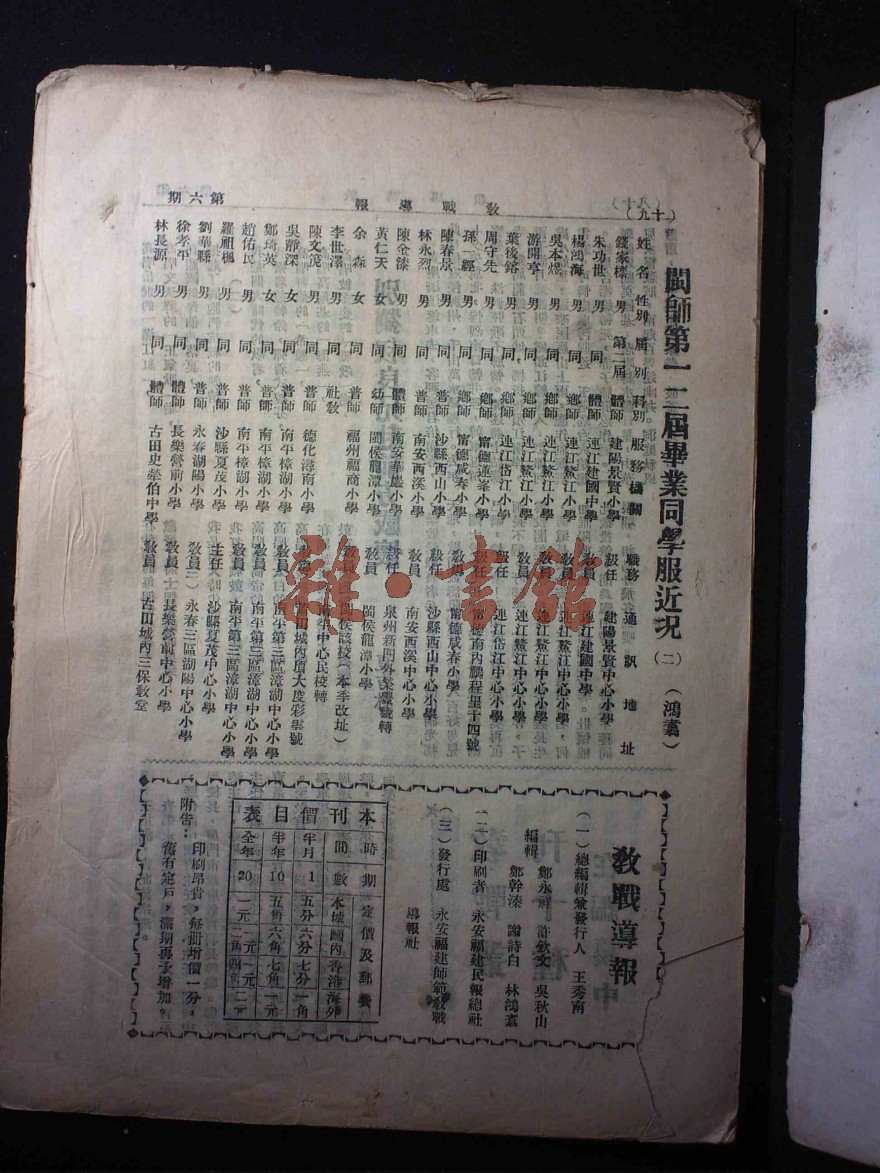 (十九)
教戰導報
第六期
閩師第一二屆畢業同學服近況(二)(鴻翥)
姓名 性別 屆別 科別 服務機關 職務 通訊地址
錢家標 男 第二屆 體師 建陽景賢小學 級任 建陽景賢中心小學
朱功世 男 同 體師 連江建國中學 教員 連江建國中學
楊鴻海 男 同 鄉師 連江鰲江小學 教員 連江鰲江中心小學
吳本煜 男 同 鄉師 連江鰲江小學 教員 連江鰲江中心小學
游開亨 男 同 鄉師 連江鰲江小學 教員 連江鰲江中心小學
葉後鎔 男 同 鄉師 連江岱江小學 級任 連江岱江中心小學
周守先 男 同 鄉師 甯德蓮峯小學 級任 甯德南內鵬程里十四號
孫一經 男 同 鄉師 甯德咸春小學 教員 甯德咸春小學
陳春景 男 同 普師 沙縣西山小學 級任 沙縣西山中心小學
林永烈 男 同 普師 南安西溪小學 教員 南安西溪中心小學
陳金漆 男 同 體師 南安華巖小學 級任 泉州新門外
黃仁天 女 同 幼師 閩侯龍潭小學 教員 閩侯龍潭小學
余森 女 同 普師 福州福商小學 教員 閩侯該校(本季改址)
李世澤 男 同 社教 南平中心民校轉
陳文茂 男 同 普師 德化潯南小學 莆田城內頂大度彩興號
吳靜深 女 同 普師 南平樟湖小學 教員 南平第三區漳湖中心小學
鄭琦英 女 同 普師 南平樟湖小學 教員 南平第三區漳湖中心小學
趙佑民 男 同 普師 南平樟湖小學 教員 南平第三區漳湖中心小學
羅祖楓 男 同 普師 沙縣夏茂小學 主任 沙縣夏茂中心小學
劉華縣 男 同 普師 永春湖陽小學 教員 永春三區湖陽中心小學
徐孝平 男 同 體師 長樂營前小學 教員 長樂營前中心小學
林長源 男 同 體師 古田史犖伯中學 教員 古田城內三保教堂
教戰導報
(一)總編輯兼發行人 王秀南
編輯 鄭永祥 許欽文 吳秋山
鄭幹溱 謝詩白 林鴻翥
(二)印刷者 永安福建民報總社
(三)發行處 永安福建師範教戰
導報社
本刊價目表
時間 期數 定價及郵費
本城 國內 香港 海外
半月 1 五分 六分 七分 一角
半年 10 五角 六角 七角 一元
全年 20 一元 一元二角 一元四角 二元
附告:印刷昂貴,每册增價一分,
舊有定戶,滿期再予增加。
雜·書館